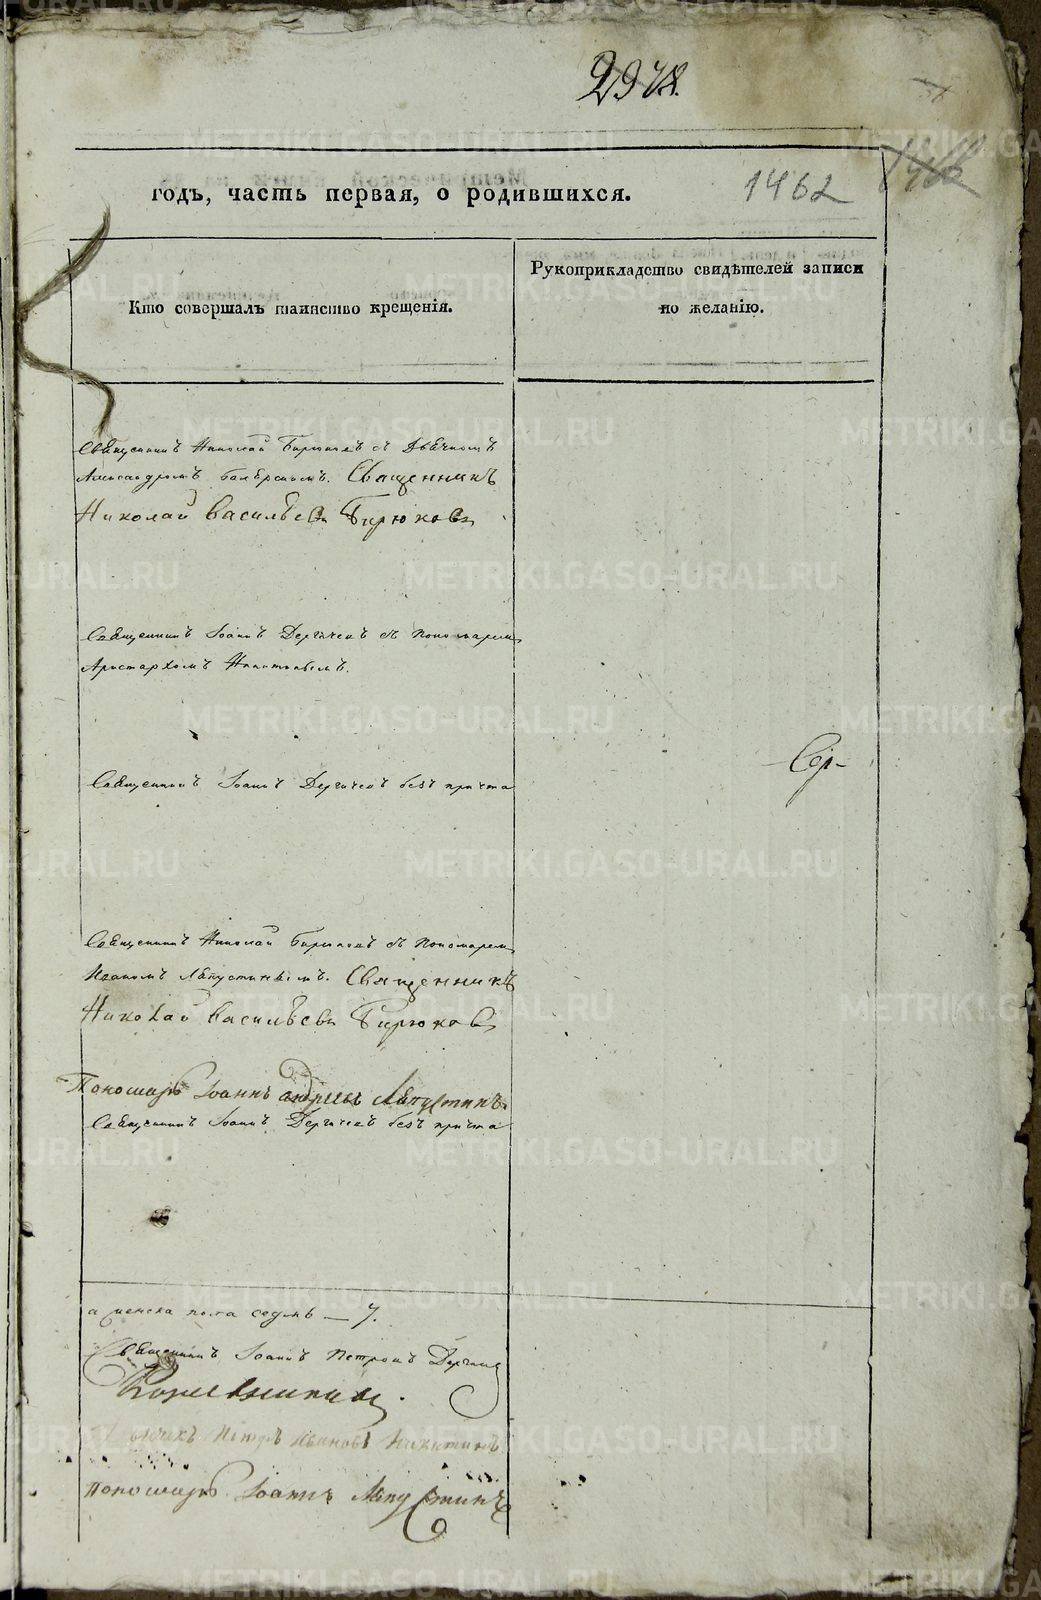 годъ, часть первая, о родившихся.
1462
Кто совершалъ таинство крещенія.
Рукоприкладство свидѣтелей записи
по желанію.
Священникъ Николай Бирюковъ съ Дьячкомъ
Александромъ Священникъ
Николай Васильевъ Бирюковъ
Священникъ Іоаннъ Дергачевъ съ пономаремъ
Аристархомъ
Священникъ Іоаннъ Дергачевъ безъ причта
Сер-
Священникъ Николай Бирюковъ съ Пономаремъ
Иваномъ Лапустинымъ. Священникъ
Николай Васильевъ Бирюковъ
Пономарь Іоаннъ Лапустинъ
Священникъ Іоаннъ Дергачевъ безъ причта
а женска пола седмь — 7.
Священникъ Іоаннъ Петровъ
Дьячекъ Петръ Ивановъ Никитинъ
пономарь Іоаннъ Лапустинъ
METRIKI.GASO-URAL.RU